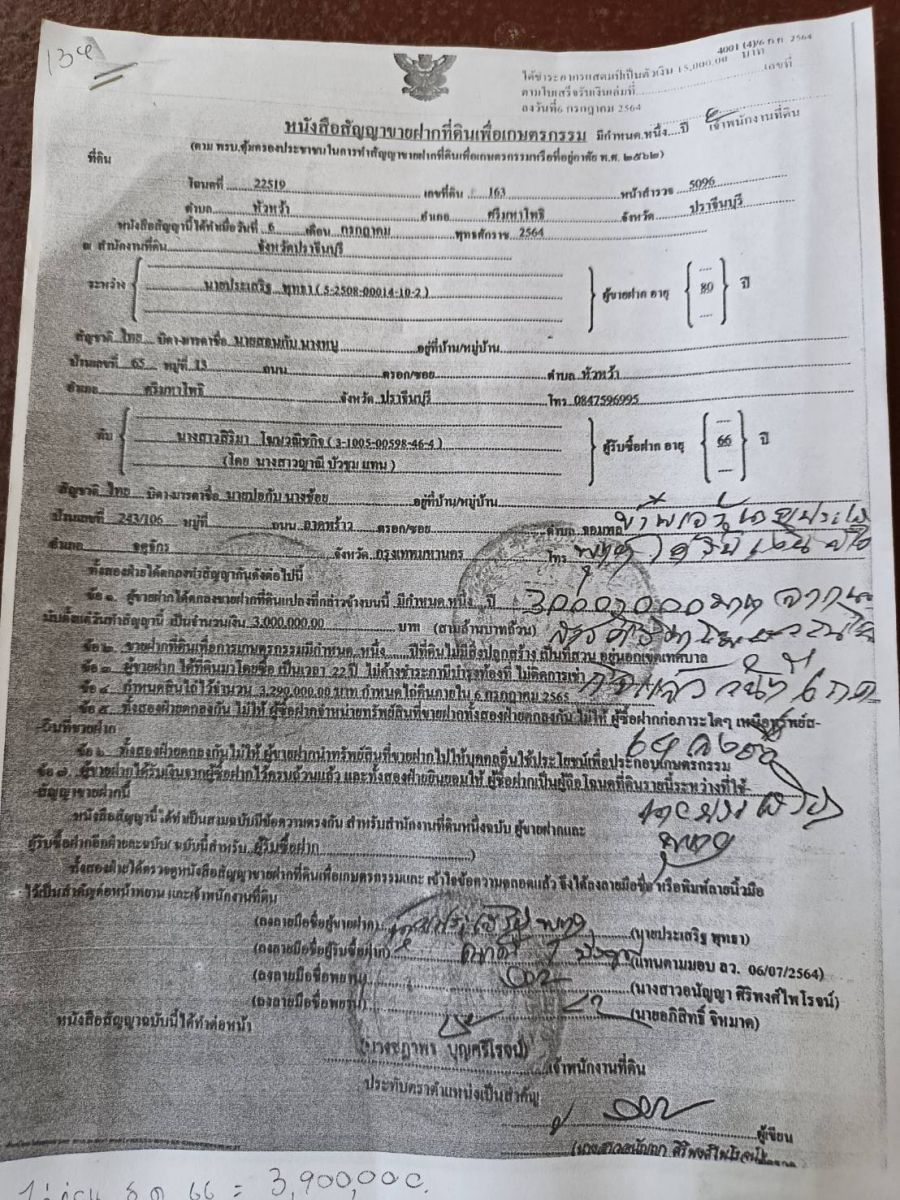 134
4001 (4)/6 ก.ค. 2564
ได้ชำระอากรแสตมป์เป็นตัวเงิน 15,000.00 บาท
ตามใบเสร็จรับเงินเล่มที่ เลขที่
ลงวันที่ 6 กรกฎาคม 2564
เจ้าพนักงานที่ดิน
หนังสือสัญญาขายฝากที่ดินเพื่อเกษตรกรรม มีกำหนด หนึ่ง ปี
(ตาม พรบ.คุ้มครองประชาชนในการทำสัญญาขายฝากที่ดินเพื่อเกษตรกรรมหรือที่อยู่อาศัย พ.ศ. ๒๕๖๒)
ที่ดิน
โฉนดที่ 22519 เลขที่ดิน 163 หน้าสำรวจ 5096
ตำบล หัวหว้า อำเภอ ศรีมหาโพธิ จังหวัด ปราจีนบุรี
หนังสือสัญญานี้ได้ทำเมื่อวันที่ 6 เดือน กรกฎาคม พุทธศักราช 2564
ณ สำนักงานที่ดิน จังหวัดปราจีนบุรี
ระหว่าง นายประเสริฐ พุทธา ( 5-2508-00014-10-2 ) ผู้ขายฝาก อายุ 80 ปี
สัญชาติ ไทย บิดา-มารดาชื่อ นายสอนกับ นางหนู อยู่ที่บ้าน/หมู่บ้าน
บ้านเลขที่ 65 หมู่ที่ 13 ถนน ตรอก/ซอย ตำบล หัวหว้า
อำเภอ ศรีมหาโพธิ จังหวัด ปราจีนบุรี โทร 0847596995
กับ นางสาวสิริมา โฆษวณิชกิจ ( 3-1005-00598-46-4 ) ผู้รับซื้อฝาก อายุ 66 ปี
(โดย นางสาวญาณี บัวชุม แทน )
สัญชาติ ไทย บิดา-มารดาชื่อ นายปอกับ นางช้อย อยู่ที่บ้าน/หมู่บ้าน
บ้านเลขที่ 243/106 หมู่ที่ ถนน ลาดพร้าว ตรอก/ซอย ตำบล จอมพล
อำเภอ จตุจักร จังหวัด กรุงเทพมหานคร โทร
ทั้งสองฝ่ายได้ตกลงทำสัญญากันดังต่อไปนี้
ข้อ ๑. ผู้ขายฝากได้ตกลงขายฝากที่ดินแปลงที่กล่าวข้างบนนี้ มีกำหนด หนึ่ง ปี
นับตั้งแต่วันทำสัญญานี้ เป็นจำนวนเงิน 3,000,000.00 บาท (สามล้านบาทถ้วน)
ข้อ ๒. ขายฝากที่ดินเพื่อการเกษตรกรรมมีกำหนด หนึ่ง ปีที่ดินไม่มีสิ่งปลูกสร้าง เป็นที่สวน อยู่นอกเขตเทศบาล
ข้อ ๓. ผู้ขายฝาก ได้ที่ดินมาโดยซื้อ เป็นเวลา 22 ปี ไม่ค้างชำระภาษีบำรุงท้องที่ ไม่ติดการเช่า
ข้อ ๔. กำหนดสินไถ่ไว้จำนวน 3,290,000.00 บาท กำหนดไถ่คืนภายใน 6 กรกฎาคม 2565
ข้อ ๕. ทั้งสองฝ่ายตกลงกัน ไม่ให้ ผู้ซื้อฝากจำหน่ายทรัพย์สินที่ขายฝากทั้งสองฝ่ายตกลงกัน ไม่ให้ ผู้ซื้อฝากก่อภาระใดๆ เหนือทรัพย์ส-
-ินที่ขายฝาก
ข้อ ๖. ทั้งสองฝ่ายตกลงกันไม่ให้ ผู้ขายฝากนำทรัพย์สินที่ขายฝากไปให้บุคคลอื่นใช้ประโยชน์เพื่อประกอบเกษตรกรรม
ข้อ ๗. ผู้ขายฝากได้รับเงินจากผู้ซื้อฝากไว้ครบถ้วนแล้ว และทั้งสองฝ่ายยินยอมให้ ผู้ซื้อฝากเป็นผู้ถือโฉนดที่ดินรายนี้ระหว่างที่ใช้-
-สัญญาขายฝากนี้
หนังสือสัญญานี้ได้ทำเป็นสามฉบับมีข้อความตรงกัน สำหรับสำนักงานที่ดินหนึ่งฉบับ ผู้ขายฝากและ
ผู้รับซื้อฝากถือฝ่ายละฉบับ(ฉบับนี้สำหรับ ผู้รับซื้อฝาก )
ทั้งสองฝ่ายได้ตรวจดูหนังสือสัญญาขายฝากที่ดินเพื่อเกษตรกรรมและ เข้าใจข้อความตลอดแล้ว จึงได้ลงลายมือชื่อ หรือพิมพ์ลายนิ้วมือ
ไว้เป็นสำคัญต่อหน้าพยาน และเจ้าพนักงานที่ดิน
(ลงลายมือชื่อผู้ขายฝาก) (นายประเสริฐ พุทธา)
(ลงลายมือชื่อผู้รับซื้อฝาก) (แทนตามมอบ ลว. 06/07/2564)
(ลงลายมือชื่อพยาน) (นางสาวอนัญญา ศิริพงศ์ไพโรจน์)
(ลงลายมือชื่อพยาน) (นายอภิสิทธิ์ จิหมาด)
หนังสือสัญญาฉบับนี้ได้ทำต่อหน้า
(นางชฎาพร บุญศรีโรจน์)
เจ้าพนักงานที่ดิน
ประทับตราตำแหน่งเป็นสำคัญ
ผู้เขียน
(นางสาวอนัญญา ศิริพงศ์ไพโรจน์)
66 = 3,900,000.